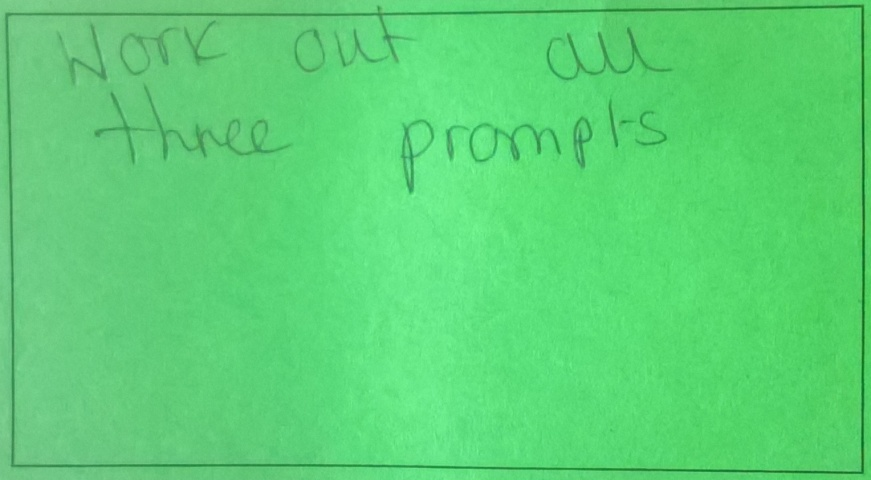 Work out all
three prompts